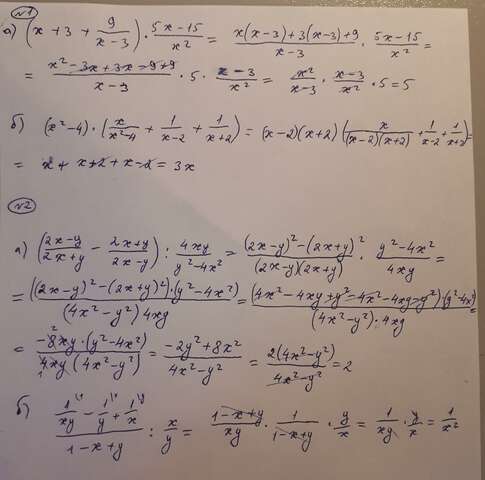 №1
а) (x + 3 + 9/(x-3)) · (5x-15)/x² = (x(x-3)+3(x-3)+9)/(x-3) · (5x-15)/x² =
= (x²-3x+3x-9+9)/(x-3) · 5 · (x-3)/x² = x²/(x-3) · (x-3)/x² · 5 = 5
б) (x²-4) · (x/(x²-4) + 1/(x-2) + 1/(x+2)) = (x-2)(x+2) (x/((x-2)(x+2)) + 1/(x-2) + 1/(x+2)) =
= x + x+2 + x-2 = 3x
№2
а) ((2x-y)/(2x+y) - (2x+y)/(2x-y)) : 4xy/(y²-4x²) = ((2x-y)²-(2x+y)²)/((2x-y)(2x+y)) · (y²-4x²)/4xy =
= (((2x-y)²-(2x+y)²)·(y²-4x²))/((4x²-y²)4xy) = ((4x²-4xy+y²-4x²-4xy-y²)(y²-4x²))/((4x²-y²)·4xy)
= (-8xy·(y²-4x²))/(4xy(4x²-y²)) = (-2y²+8x²)/(4x²-y²) = 2(4x²-y²)/(4x²-y²) = 2
б) (1/xy - 1/y + 1/x)/(1-x+y) : x/y = (1-x+y)/xy · 1/(1-x+y) · y/x = 1/xy · y/x = 1/x²